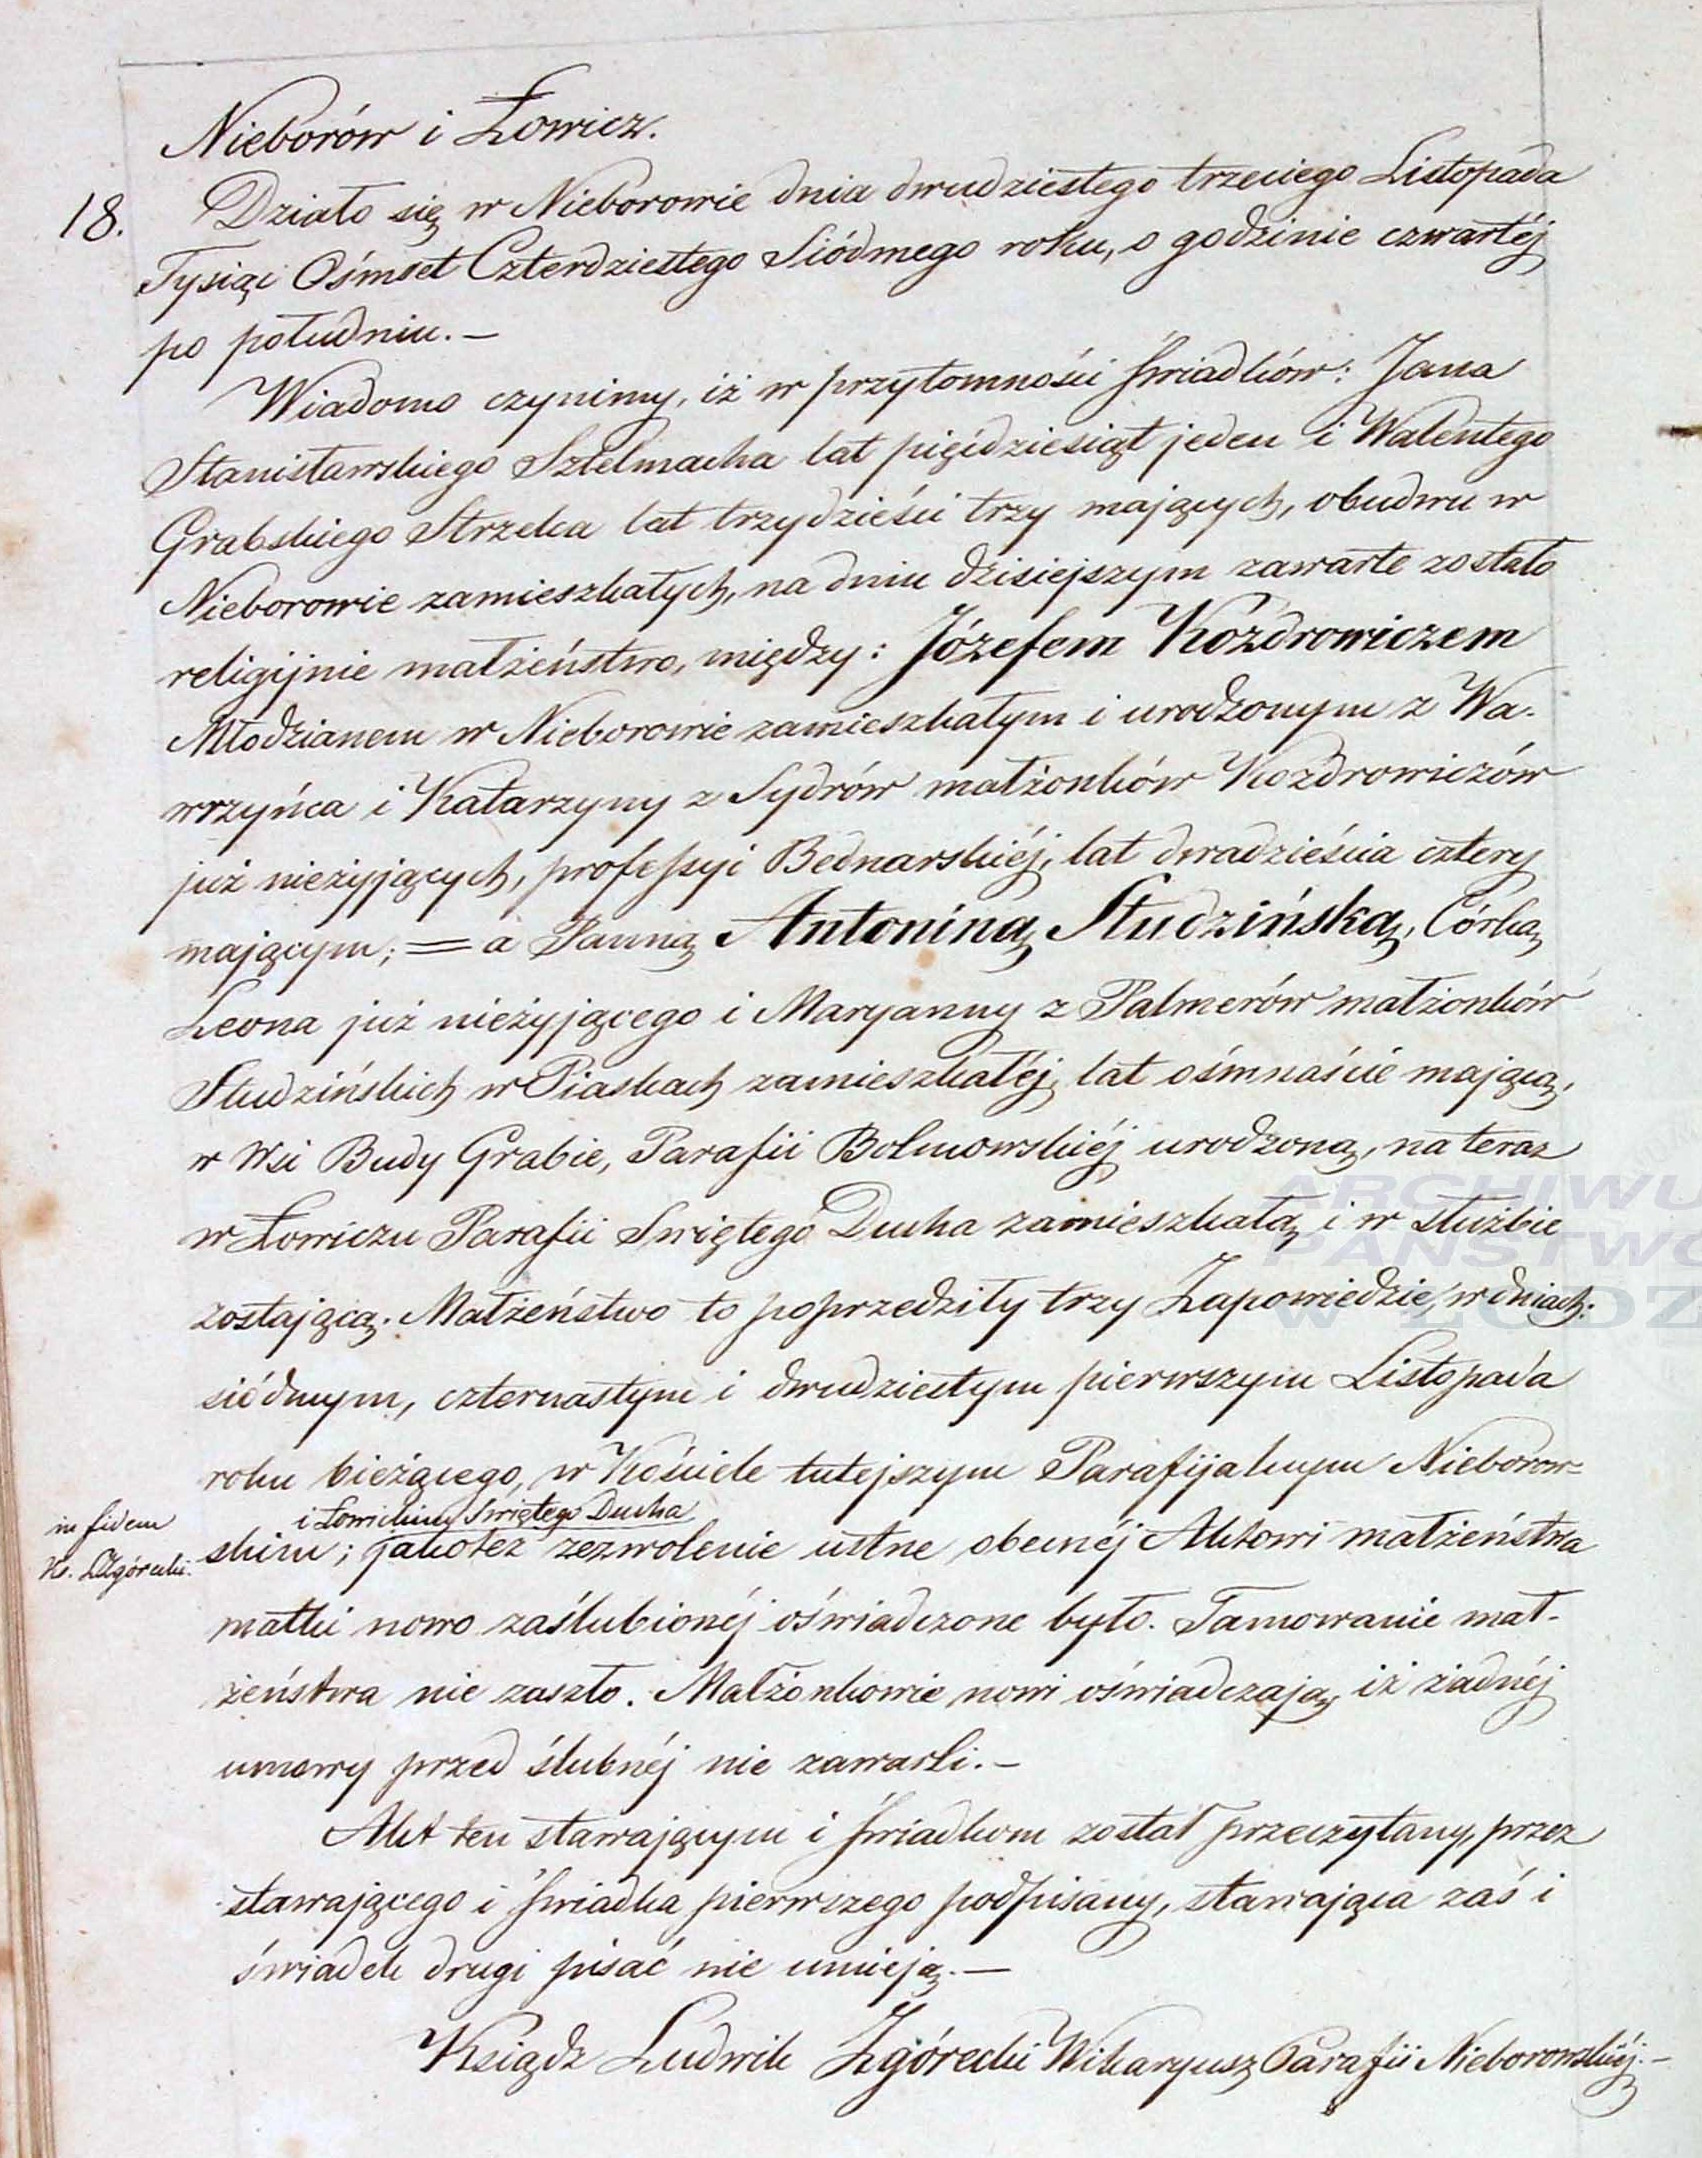 Nieborów i Łowicz.
18. Działo się w Nieborowie dnia dwudziestego trzeciego Listopada
Tysiąc Ośmset Czterdziestego Siódmego roku, o godzinie czwartéj
po południu. —
Wiadomo czynimy, iż w przytomności świadków: Jana
Stanisławskiego Sztelmacha lat pięćdziesiąt jeden i Walentego
Grabskiego Strzelca lat trzydzieści trzy mających, obudwu w
Nieborowie zamieszkałych, na dniu dzisiejszym zawarte zostało
religijnie małżeństwo, między: Józefem Kozdrowiczem
Młodzianem w Nieborowie zamieszkałym i urodzonym z Wa-
wrzyńca i Katarzyny z Sydrów małżonków Kozdrowiczów
już nieżyjących, professyi Bednarskiéj, lat dwadzieścia cztery
mającym; = a Panną Antoniną Studzińską, Córką
Leona już nieżyjącego i Maryanny z Palmerów małżonków
Studzińskich w Piaskach zamieszkałéj, lat ośmnaście mającą,
w Wsi Budy Grabie, Parafii Bolimowskiéj urodzoną, na teraz
w Łowiczu Parafii Swiętego Ducha zamieszkałą i w służbie
zostającą. Małżeństwo to poprzedziły trzy Zapowiedzie, w dniach:
siódmym, czternastym i dwudziestym pierwszym Listopada
roku bieżącego, w Kościele tutejszym Parafijalnym Nieborow=
i Łowickim Swiętego Ducha
in fidem
Ks. Zgórecki.
skim; jakoteż zezwolenie ustne obecnéj Aktowi małżeństwa
matki nowo zaślubionéj oświadczone było. Tamowanie mał-
żeństwa nie zaszło. Małżonkowie nowi oświadczają, iż żadnéj
umowy przed ślubnéj nie zawarli. —
Akt ten stawającym i świadkom został przeczytany, przez
stawającego i świadka pierwszego podpisany, stawająca zaś i
świadek drugi pisać nie umieją. —
Ksiądz Ludwik Zgórecki Wikaryusz Parafii Nieborowskiéj. —
ARCHIWU
PAŃSTWO
W ŁODZ